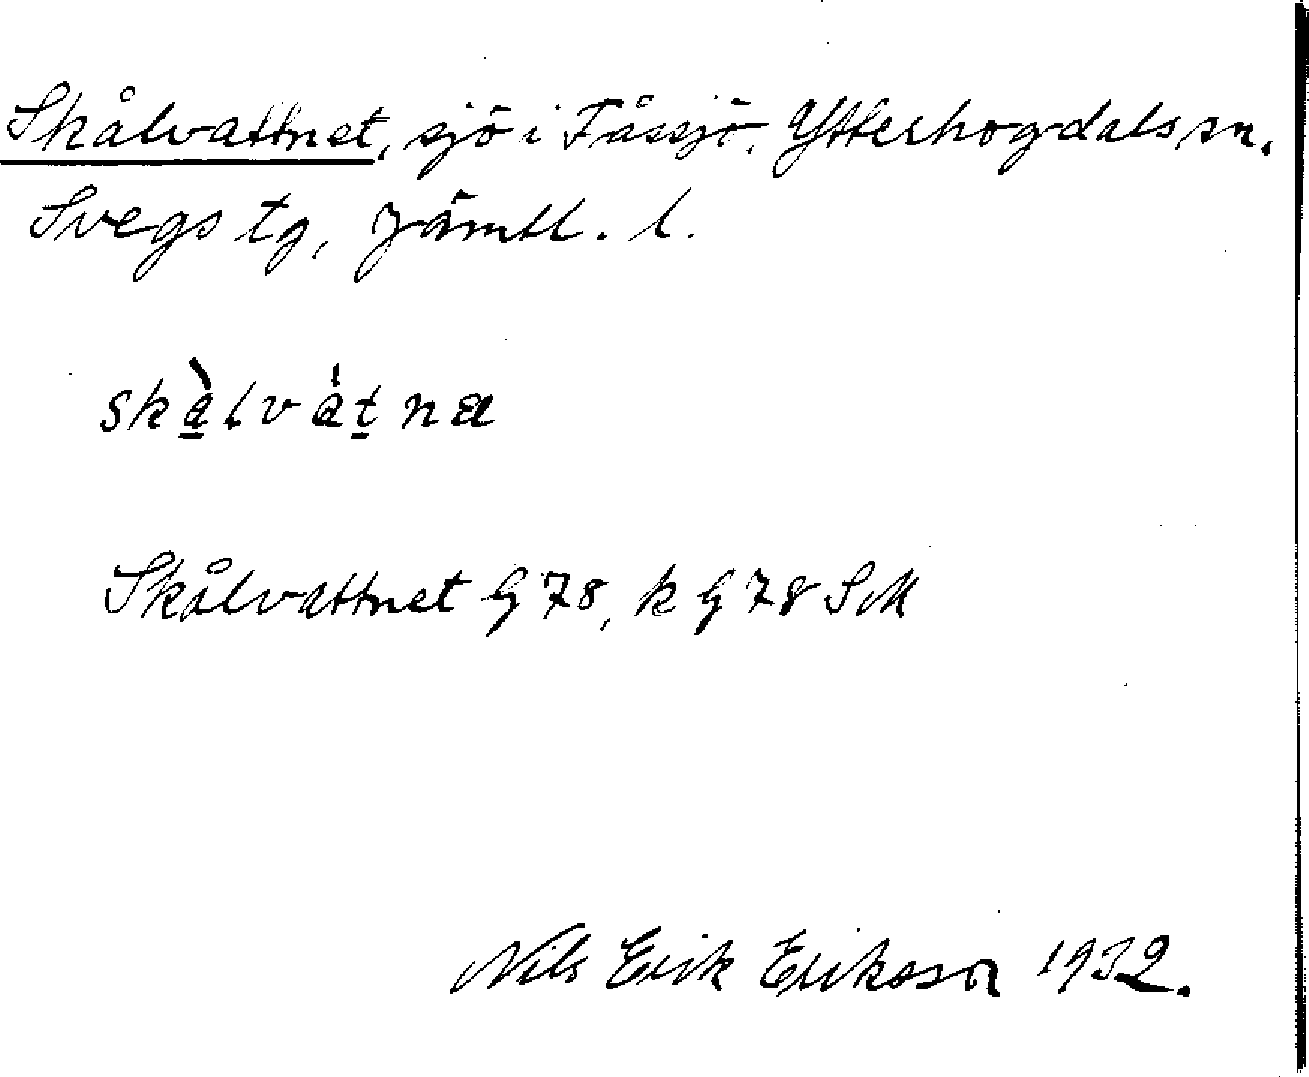 Skålvattnet, sjö i Fåssjö, Ytterhogdals sn.
Svegs tg, Jämtl. l.
skàlvátnæ
Skålvattnet G 78, k G 78 SM
Nils Erik Eriksson 1932.